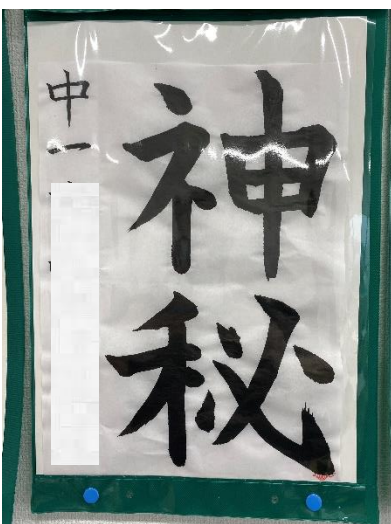 神秘
中一